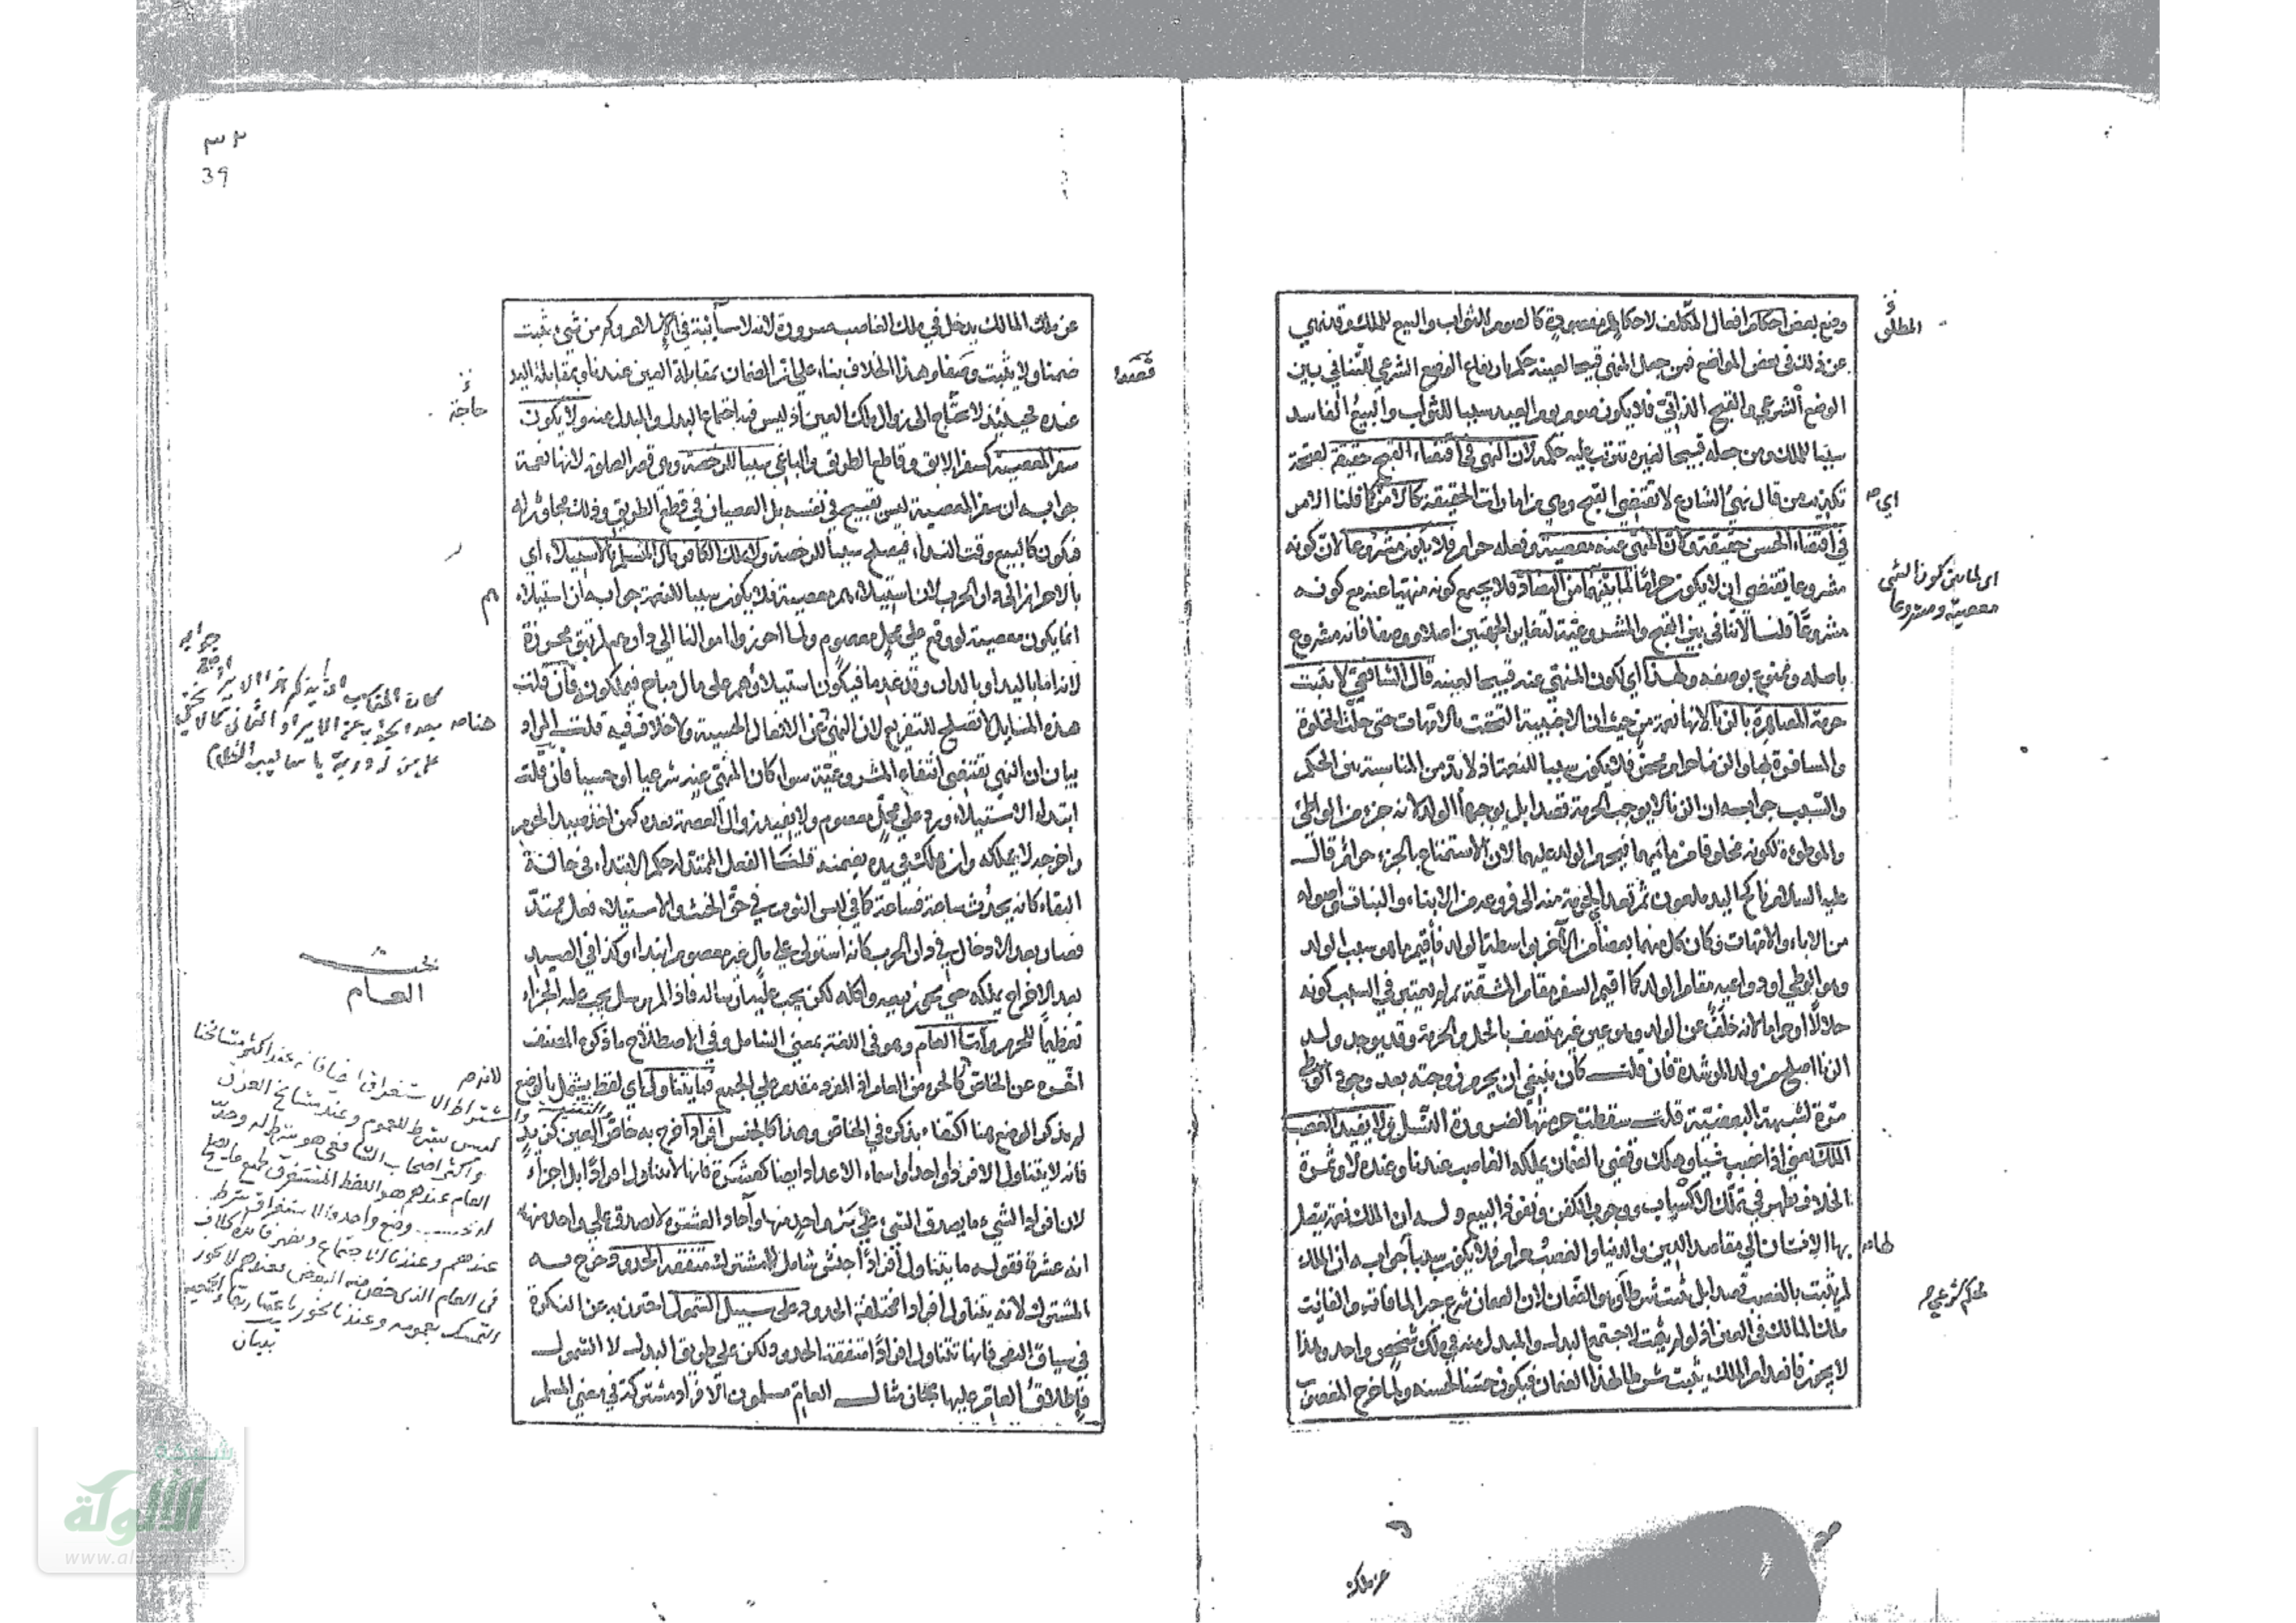 وضع بعض احكام افعال المكلف لاحكام مقصودة كالصوم للثواب والبيع للملك وقد نهي
عن ذلك في بعض المواضع فمن جعل المنهي قبيحا لعينه حكم بارتفاع الوضع الشرعي للتنافي بين
الوضع الشرعي والقبح الذاتي فلا يكون صوم يوم العيد سببا للثواب والبيع الفاسد
سببا للملك ومن جعله قبيحا لغيره ترتب عليه حكمه لان النهي في اقتضاء القبح حقيقة لصحة
تكذيب من قال نهي الشارع لا يقتضي القبح وهي من امارات الحقيقة كالامر كما قلنا الامر
في اقتضاء الحسن حقيقة وكان المنهي عنه معصية وفعله حرام فلا يكون مشروعا لان كونه
مشروعا يقتضي ان لا يكون حراما لما بينهما من التضاد فلا يجمع كونه منهيا عنه مع كونه
مشروعا قلنا لا تنافي بين القبح والمشروعية لتغاير الجهتين اصلا ووصفا فانه مشروع
باصله وممنوع بوصفه ولهذا اي لكون المنهي عنه قبيحا لعينه قال الشافعي لا يثبت
حرمة المصاهرة بالزنا لانها نعمة من حيث ان الاجنبية التحقت بالامهات حتى حلت الخلوة
والمسافرة بها والزنا حرام محض فلا يكون سببا للنعمة اذ لا بد من المناسبة بين الحكم
والسبب جوابه ان الزنا لا يوجب الحرمة قصدا بل يوجبها الولد لانه جزء من الواطئ
والموطوءة لكونه مخلوقا من مائهما فيحرم الولد عليهما لان الاستمتاع بالجزء حرام قال
عليه السلام ناكح اليد ملعون ثم تعدى الحرمة منه الى فروعه من الابناء والبنات واصوله
من الاباء والامهات وكان كل منهما بعضا من الآخر بواسطة الولد فاقيم ما هو سبب الولد
وهو الوطي او دواعيه مقام الولد كما اقيم السفر مقام المشقة ولم يعتبر في السبب كونه
حلالا او حراما لانه خلف عن الولد وهو عين غير متصف بالحل والحرمة وقد يوجد ولد
الزنا اصلح من ولد الرشدة فان قلت كان ينبغي ان يحرم زوجته بعد وجود الوطي
مرة لشبهة البعضية قلت سقطت حرمتها لضرورة النسل ولا يفيد الغصب
الملك يعني اذا غصب شيئا وهلك وقضي بالضمان يملكه الغاصب عندنا وعنده لا وثمرة
الخلاف يظهر في تملك الاكساب ووجوب الكفن ونفوذ البيع وله ان الملك نعمة يتصل
بها الانسان الى مقاصد الدين والدنيا والغصب حرام فلا يكون سببا جوابه ان الملك
لم يثبت بالغصب قصدا بل يثبت شرطا وهو الضمان لان الضمان شرع جبرا لما فاته والفائت
ملك المالك في العين اذ لو لم يثبت لاجتمع البدل والمبدل عنه في ملك شخص واحد وهذا
لا يجوز فانعدام الملك يثبت شرطا لهذا الضمان فيكون حسنا لحسنه ولما خرج المغصوب
المطلق
اي
اي لما بين كون الشي
معصية ومشروعا
حكم شرعي
عن ملك
٣٢
39
عن ملك المالك يدخل في ملك الغاصب ضرورة لانه لا سائبة في الاسلام وكم من شيء يثبت
ضمنا ولا يثبت وصفا وهذا الخلاف بناء على ان الضمان بمقابلة العين عندنا وبمقابلة اليد
عنده فحينئذ لا تحتاج الى زوال ملك العين اذ ليس فيه اجتماع البدل والمبدل عنه ولا يكون
سفر المعصية كسفر الابق وقاطع الطريق والباغي سببا للرخصة وهي قصر الصلوة لانها نعمة
جوابه ان سفر المعصية ليس بقبيح في نفسه بل العصيان في قطع الطريق وذلك مجاور له
فيكون كالبيع وقت النداء فيصلح سببا للرخصة ولا يملك الكافر مال المسلم بالاستيلاء اي
بالاحراز الى دار الحرب لان استيلاءهم معصية فلا يكون سببا للنعمة جوابه ان استيلاء
انما يكون معصية لو وقع على محل معصوم ولما احرزوا اموالنا الى دارهم لم تبق محرزة
لانه اما باليد او بالدار وقد عدما فيكون استيلاؤهم على مال مباح فيملكون فان قلت
هذه المسايل لا تصلح للتفريع لان النهي عن الافعال الحسية ولا خلاف فيه قلت المراد
بيان ان النهي يقتضي انتفاء المشروعية سواء كان المنهي عنه شرعيا او حسيا فان قلت
ابتداء الاستيلاء ورد على محل معصوم ولا يفيد زوال العصمة بعده كمن اخذ صيد الحرم
واخرجه لا يملكه وان هلك في يده يضمنه قلنا الفعل الممتد له حكم الابتداء في حالة
البقاء كانه يحدث ساعة فساعة كما في لبس الثوب في حق الحنث والاستيلاء فعل ممتد
فصار بعد الادخال في دار الحرب كانه استولى على مال غير معصوم ابتداء وكذا في الصيد
بعد الاخراج يملكه حتى يجوز بيعه واكله لكن يجب عليه ارساله فاذا لم يرسل يجب عليه الجزاء
تعظيما للحرم واما العام وهو في اللغة بمعنى الشامل وفي الاصطلاح ما ذكره المصنف
اخره عن الخاص لان الخاص من العام اذ الفرد مقدم على الجمع فما يتناول اي لفظ يشتمل بالوضع
لم يذكر الوضع هنا اكتفاء بذكره في الخاص وهذا كالجنس افرادا خرج به خاص العين كزيد
فانه لا يتناول الا فردا واحدا واسماء الاعداد ايضا كعشرة فانها لا تتناول افرادا بل اجزاء
لان افراد الشيء ما يصدق الشيء على كل واحد منها وآحاد العشرة لا يصدق على واحد منها
انه عشرة فقوله ما يتناول افرادا جنس شامل للمشترك متفقة الحدود خرج به
المشترك لانه يتناول افرادا مختلفة الحدود على سبيل الشمول احترز به عن النكرة
في سياق النفي فانها تتناول افرادا متفقة الحدود ولكن على طريق البدل لا الشمول
واطلاق العام عليها مجاز مثال العام مسلمون الافراد مشتركة في معنى المسلم
قصدا
حاجة
بحث
العام
اشتراط الاستغراق
ليس بشرط للعموم وعند مشايخ العراق
واكثر اصحاب الشافعي هو شرط له وحد
العام عندهم هو اللفظ المستغرق لجميع ما يصلح
له بوضع واحد والاستغراق شرط
عندهم وعندنا الاجتماع
في العام الذي خص منه البعض فعندهم لا يجوز
التمسك بعمومه وعندنا يجوز
شبكة
الألوكة
www.alukah.net